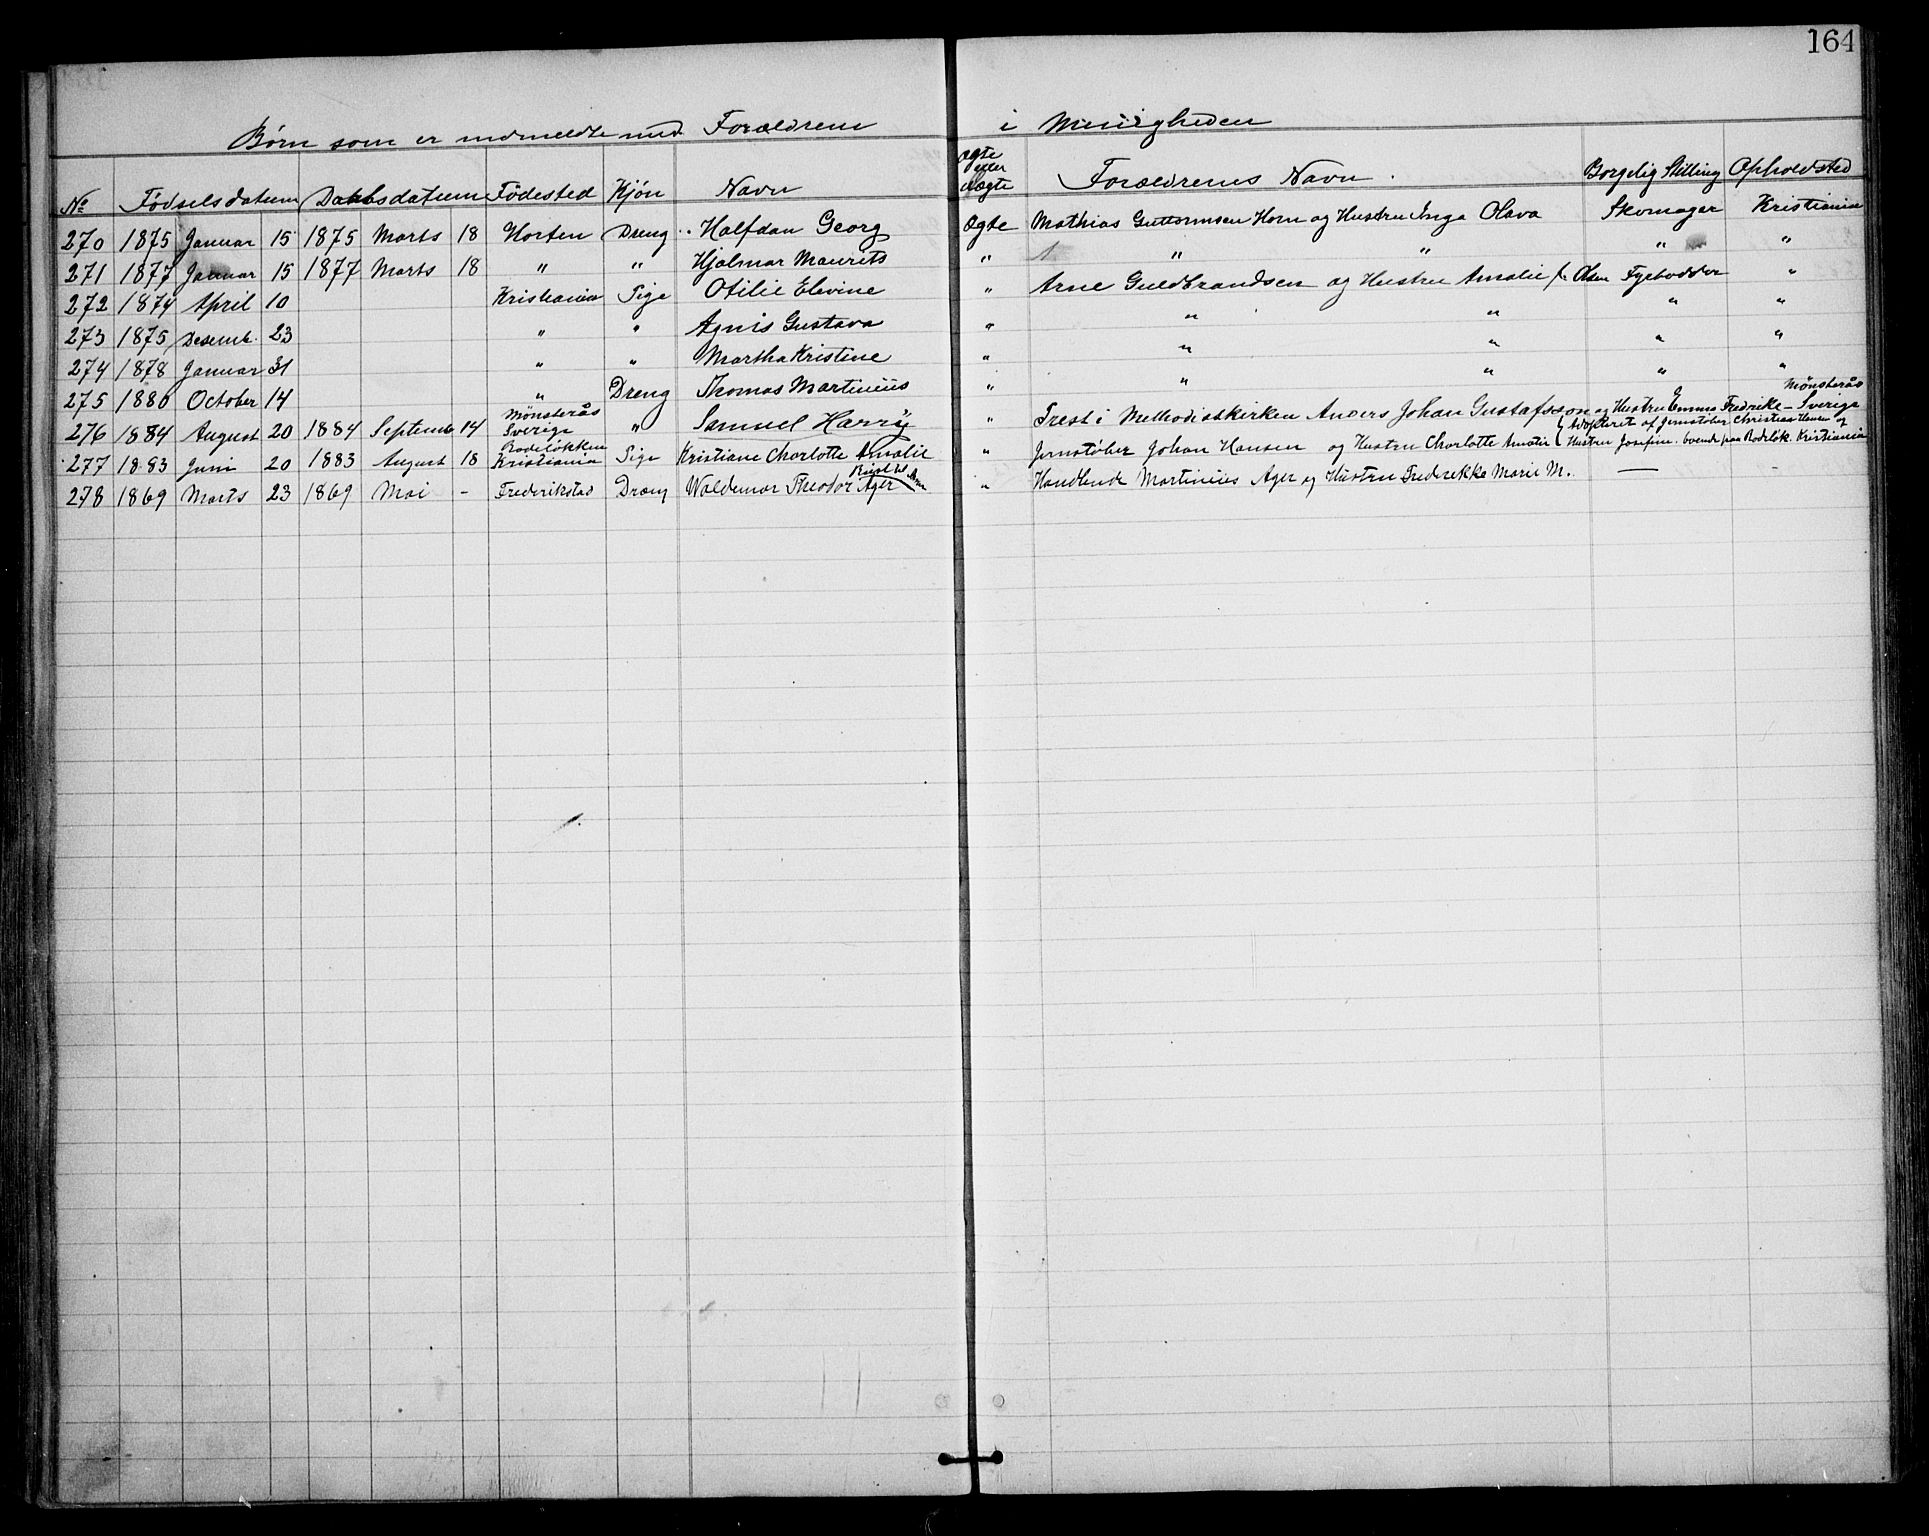 164
Børn som er indmeldte med Forældrene i Menigheden
No Fødselsdatum Daabsdatum Fødested Kjön Navn Ægte eller uægte Forældrenes Navn. Borgelig Stilling Opholdsted
270 1875 Januar 15 1875 Marts 18 Horten Dreng Halfdan Georg Ægte Mathias Guttormsen Horn og Hustru Inga Olava Skomager Kristiania
271 1877 Januar 15 1877 Marts 18 " " Hjalmar Maurits " " " " "
272 1874 April 10 Kristiania Pige Otilie Elevine " Arne Guldbrandsen og Hustru Amalie f. Olsen Fyrbødder "
273 1875 Desemb. 23 " " Agnis Gustava " " " " "
274 1878 Januar 31 " " Martha Kristine " " " " "
275 1880 October 14 " Dreng Thomas Martinius " " " " "
276 1884 August 20 1884 Septemb 14 Mønsterås Sverige " Samuel Harry " Prest i Methodistkirken Anders Johan Gustafsson og Hustru Emma Fredrike – Mønsterås Sverige
277 1883 Juni 20 1883 August 18 Rodeløkken Kristiania Pige Kristiane Charlotte Amalie " Jernstøber Johan Hansen og Hustru Charlotte Amalie { Adopteret af Jernstøber Christian Hansen og Hustru Josefine. boende paa Rodeløk. Kristiania
278 1869 Marts 23 1869 Mai - Frederikstad Dreng Waldemar Theodor Ager " Handlende Martinius Ager og Hustru Fredrekke Marie M. —